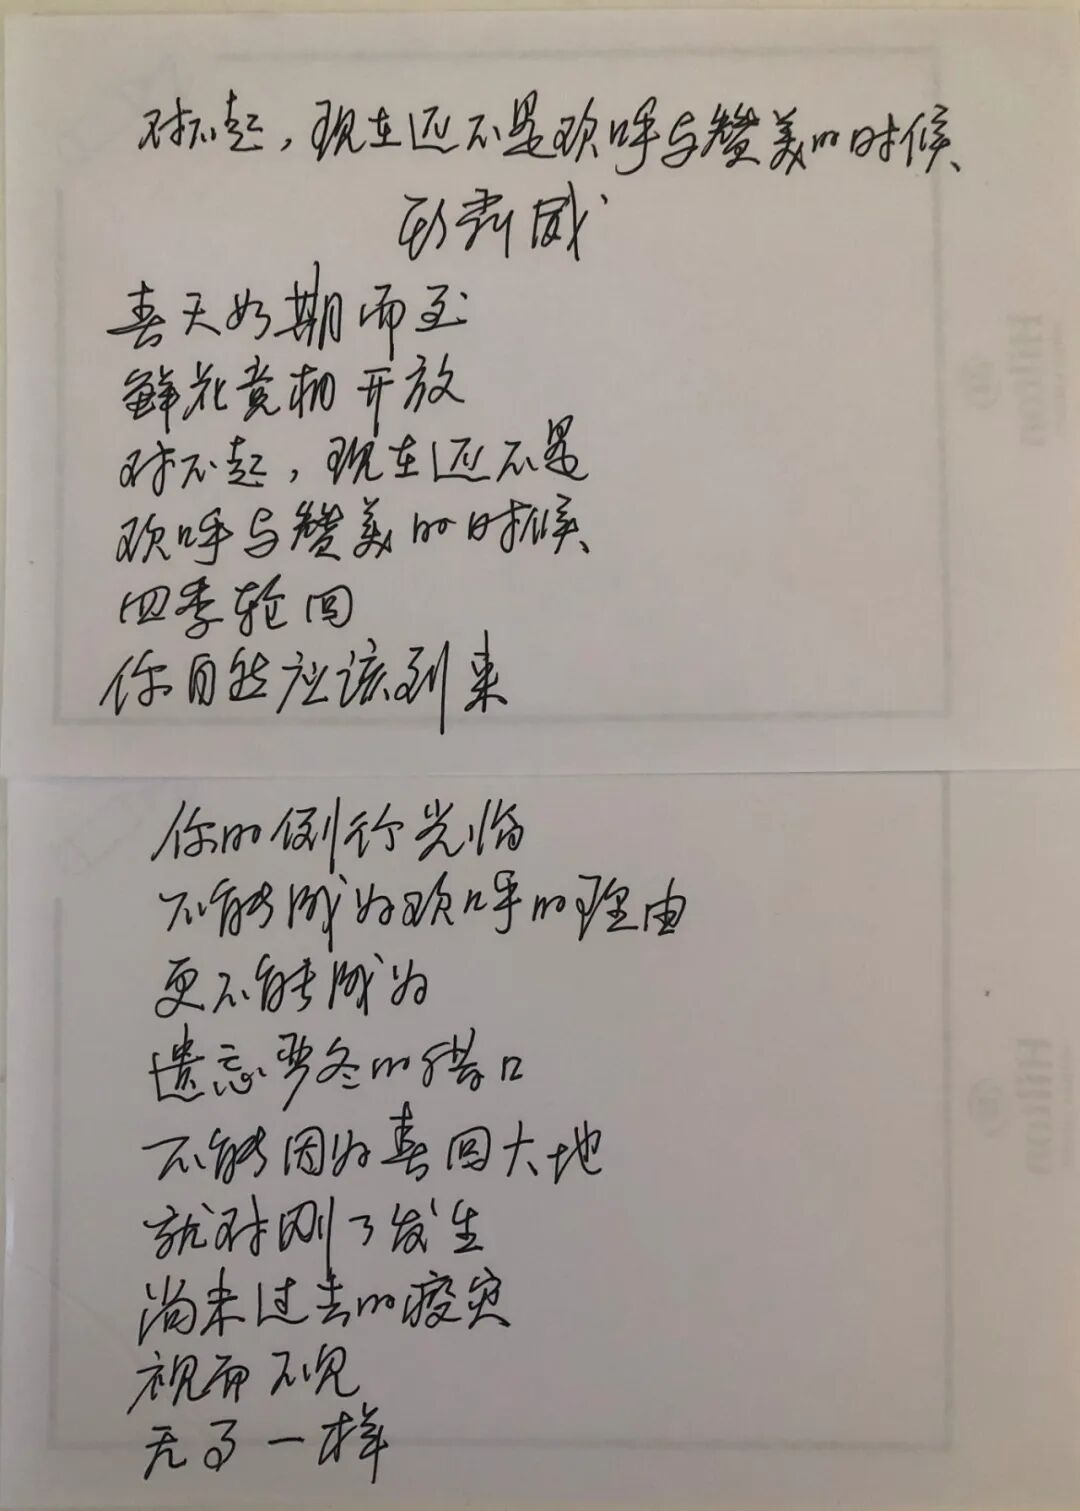 对不起，现在还不是欢呼与赞美的时候
春天如期而至
鲜花竞相开放
对不起，现在还不是
欢呼与赞美的时候
四季轮回
你自然应该到来
你的例行光临
不能成为欢呼的理由
更不能成为
遗忘严冬的借口
不能因为春回大地
就对刚了发生
尚未过去的疫灾
视而不见
无了一样
Hilton
Hilton